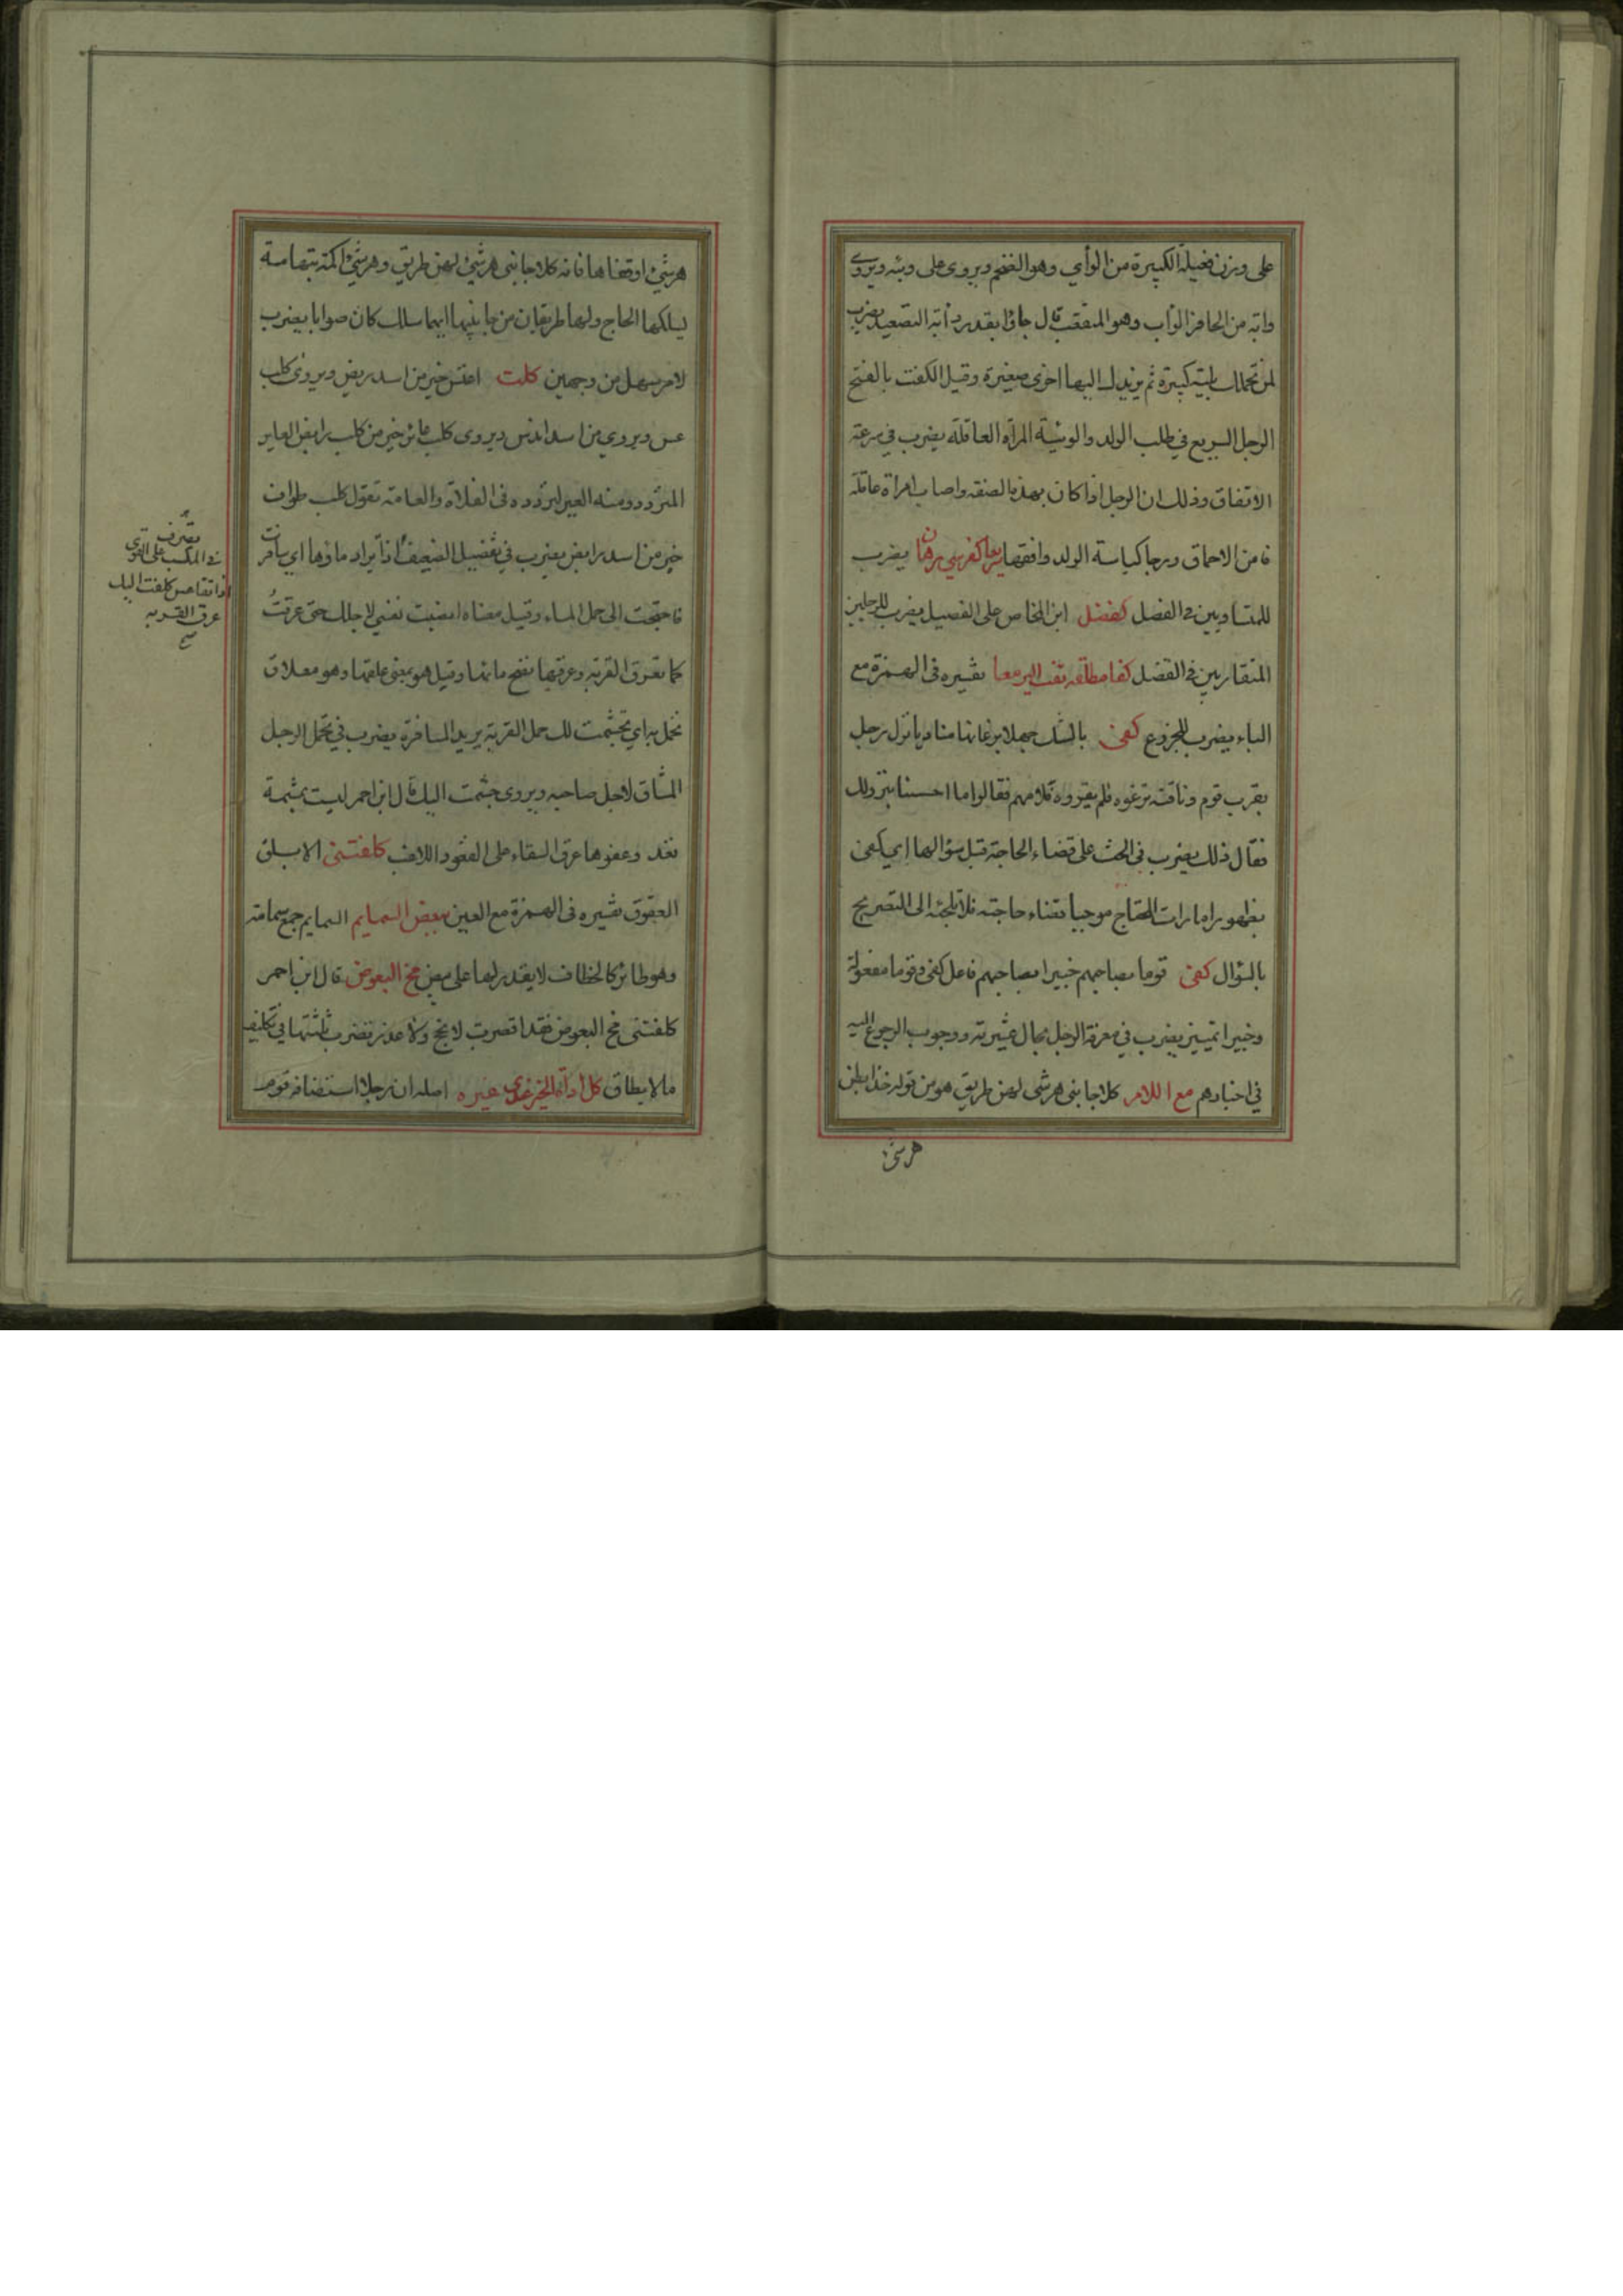 على وزن فعيلة الكبيرة من الوأي وهو الضخم ويروى على وئيه ويروى
وابة من الحافر الوأب وهو المقعب قال جاؤا بقدر وأبة التصعيد يضرب
لمن تحملك بلية كبيرة ثم يزيدك اليها اخرى صغيرة وقيل الكفت بالفتح
الرجل السريع في طلب الولد والوئية المرأة العاقلة يضرب في سرعة
الاتفاق وذلك ان الرجل اذا كان بهذه الصفة واصاب امراة عاقلة
فامن الاحماق ورجا كياسة الولد وافقها سريعا كفرسي رهان يضرب
للمتساويين في الفضل كفضل ابن المخاض على الفصيل يضرب للرجلين
المتقاربين في الفضل كفا مطلقة تفت اليرمع تفسيره في الهمزة مع
الياء يضرب للجزوع كفى برغائها مناديا نزل رجل
بقرب قوم وناقته ترغو فلم يقروه فلامهم فقالوا ما احسسنا بنزولك
فقال ذلك يضرب في الحث على قضاء الحاجة قبل سؤالها اي كفى
بظهور امارات المحتاج موجبا لقضاء حاجته فلا تلجئه الى التصريح
بالسؤال كفى قوما بصاحبهم خبيرا بصاحبهم فاعل كفى وقوما مفعوله
وخبيرا تمييز يضرب في معرفة الرجل بحال عشيرته ووجوب الرجوع اليه
في اخبارهم مع اللام كلا جانبي هرشى لهن طريق هو من قوله خذا بطن
هرشى
هرشى او قفاها فانه كلا جانبي هرشى لهن طريق وهرشى اكمة بتهامة
يسلكها الحاج ولها طريقان من جانبيها ايهما سلك كان صوابا يضرب
لامر سهل من وجهين كلب اعتس خير من اسد ربض ويروى كلب
عس ويروى من اسد اندس ويروى كلب عائر خير من كلب رابض العاير
المتردد ومنه العير لتردده في الفلاة والعامة تقول كلب طواف
خير من اسد رابض يضرب في تفضيل الضعيف اذا يراد ماؤها اي سافرت
فاحتجت الى حمل الماء وقيل معناه اتعبت نفسي لاجلك حتى عرقت
كما تعرق القربة وعرقها نضح مائها وقيل هو بمعنى علقها وهو معلاق
تحمل به اي تجشمت لك حمل القربة يريد المسافرة يضرب في تحمل الرجل
المشاق لاجل صاحبه ويروى جشمت اليك قال ابن احمر ليست بمشتمة
تعد وعفوها عرق السقاء على القعود اللاغب كلفتني الابلق
العقوق تفسيره في الهمزة مع العين بيض السمايم السمايم جمع سمامة
وهو طائر كالخطاف لا يقدر لها على بيض مخ البعوض قال ابن احمر
كلفتني مخ البعوض فقد اقصرت لا نجح ولا عذر تضرب ثلثتها في تكليف
ما لا يطاق كل اداة الخبز عندي غيره اصله ان رجلا استضافه قوم
يضرب
في المكسب على القوي
اذا تقاعس كلفت اليك
عرق القربة
صح